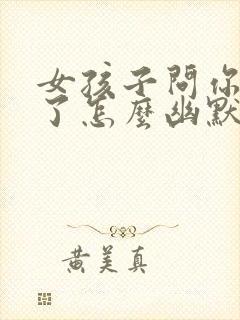 女孩子問你
了怎麼幽默
黃美真